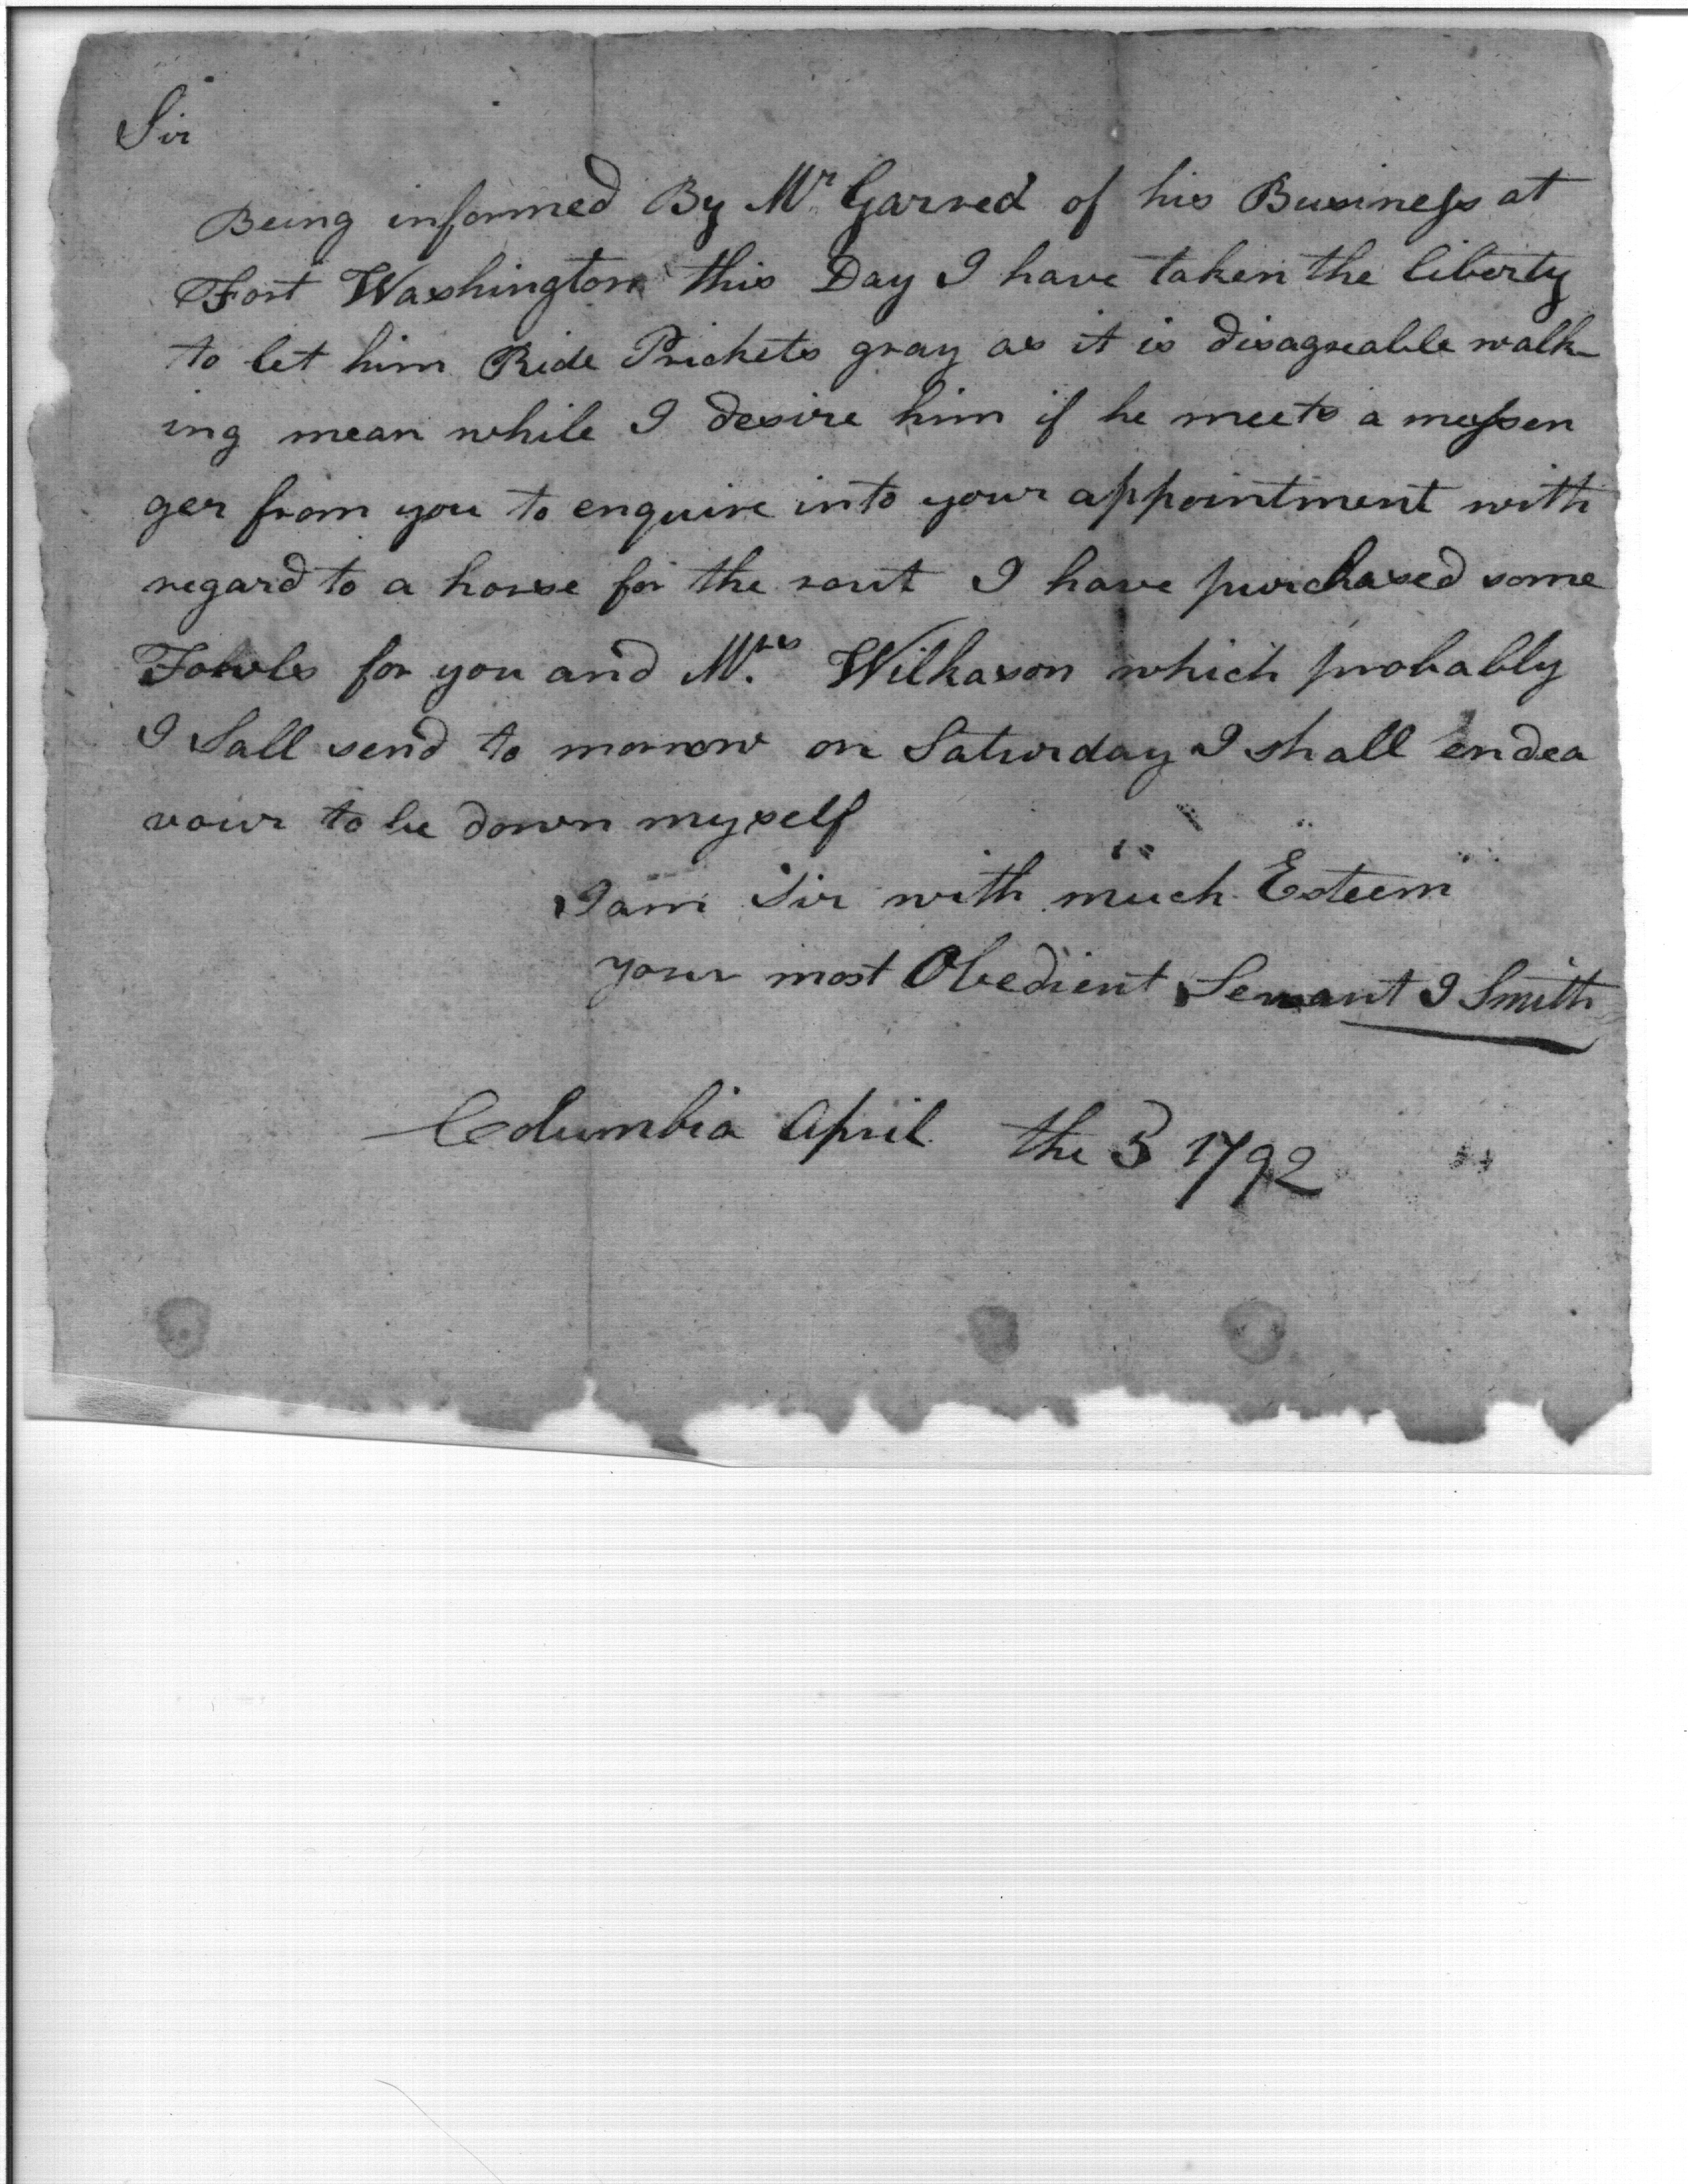 Sir
Being informed By Mr Garred of his Business at
Fort Washington this Day I have taken the liberty
to let him Ride Prickets gray as it is disagreable walk-
ing mean while I desire him if he meets a messen
ger from you to enquire into your appointment with
regard to a horse for the rout I have purchased some
Fowls for you and Mrs. Wilkason which probably
I Sall send to morrow on Saturday I shall endea
vour to be down myself
I am Sir with much Esteem
your most Obedient Servant I Smith
Columbia April the 5 1792